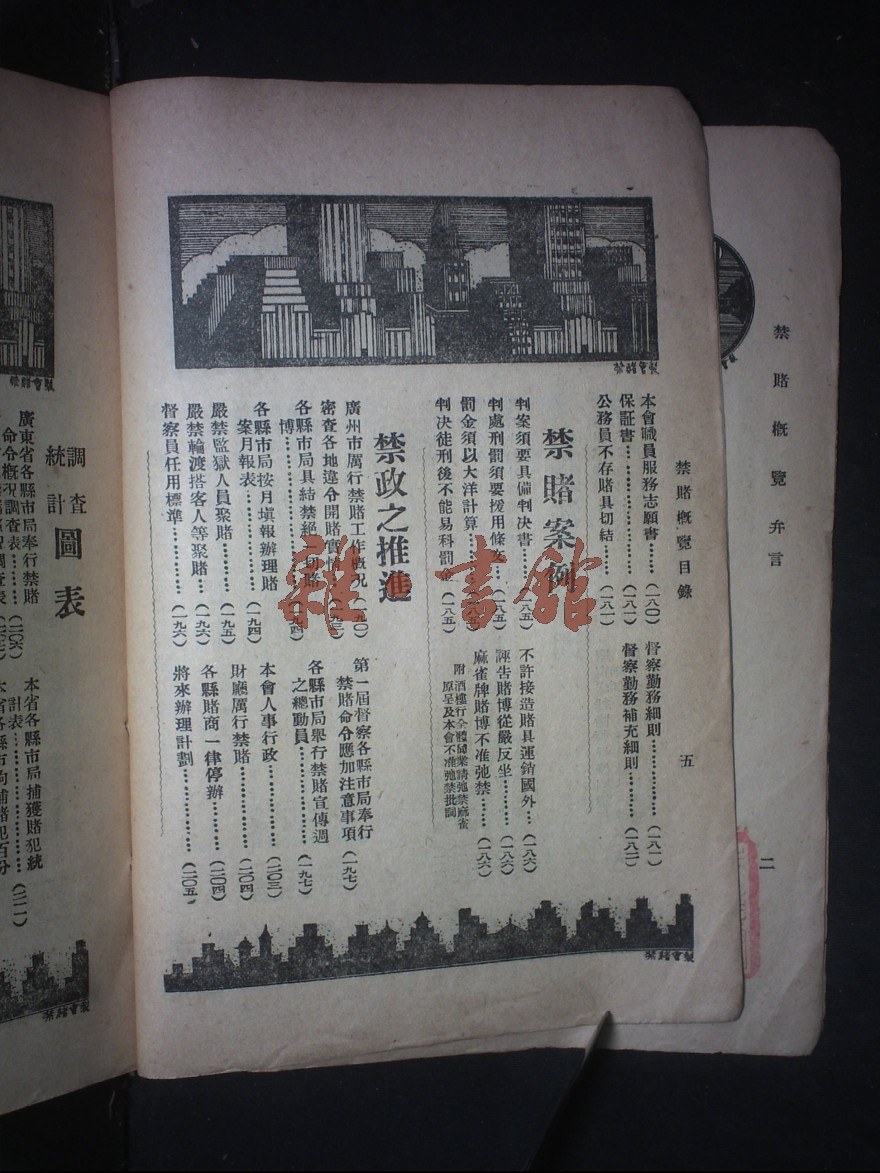 禁賭概覽弁言
二
禁賭概覽目錄
五
本會職員服務志願書……(一八〇)
保証書……(一八一)
公務員不存賭具切結……(一八一)
督察勤務細則……(一八一)
督察勤務補充細則……(一八二)
禁賭案例
判案須要具備判决書……(一八五)
判處刑罰須要援用條文……(一八五)
罰金須以大洋計算……(一八五)
判决徒刑後不能易科罰金(一八五)
不許接造賭具運銷國外…(一八六)
誣告賭博從嚴反坐……(一八六)
麻雀牌賭博不准弛禁……(一八六)
附酒樓行全體同業請弛禁麻雀
原呈及本會不准弛禁批詞
禁政之推進
廣州市厲行禁賭工作概況(一九〇)
密查各地違令開賭實情
各縣市局具結禁絕一切賭
博……(一九四)
各縣市局按月塡報辦理賭
案月報表……(一九四)
嚴禁監獄人員聚賭……(一九五)
嚴禁輪渡搭客人等聚賭…(一九六)
督察員任用標準……(一九六)
第一屆督察各縣市局奉行
禁賭命令應加注意事項(一九七)
各縣市局舉行禁賭宣傳週
之總動員……(一九七)
本會人事行政……(二〇三)
財廳厲行禁賭……(二〇四)
各縣賭商一律停辦……(二〇四)
將來辦理計劃……(二〇五)
禁賭會製
禁賭會製
調查
統計
圖表
廣東省各縣市局奉行禁賭
命令概況調查表……(二〇六)
本省各縣市局捕獲賭犯統
計表……(二一一)
禁賭會製
禁賭會製
雜·書館